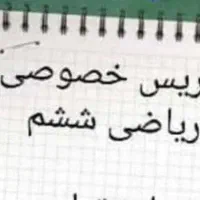 ریس خصوصی
ریاضی ششم